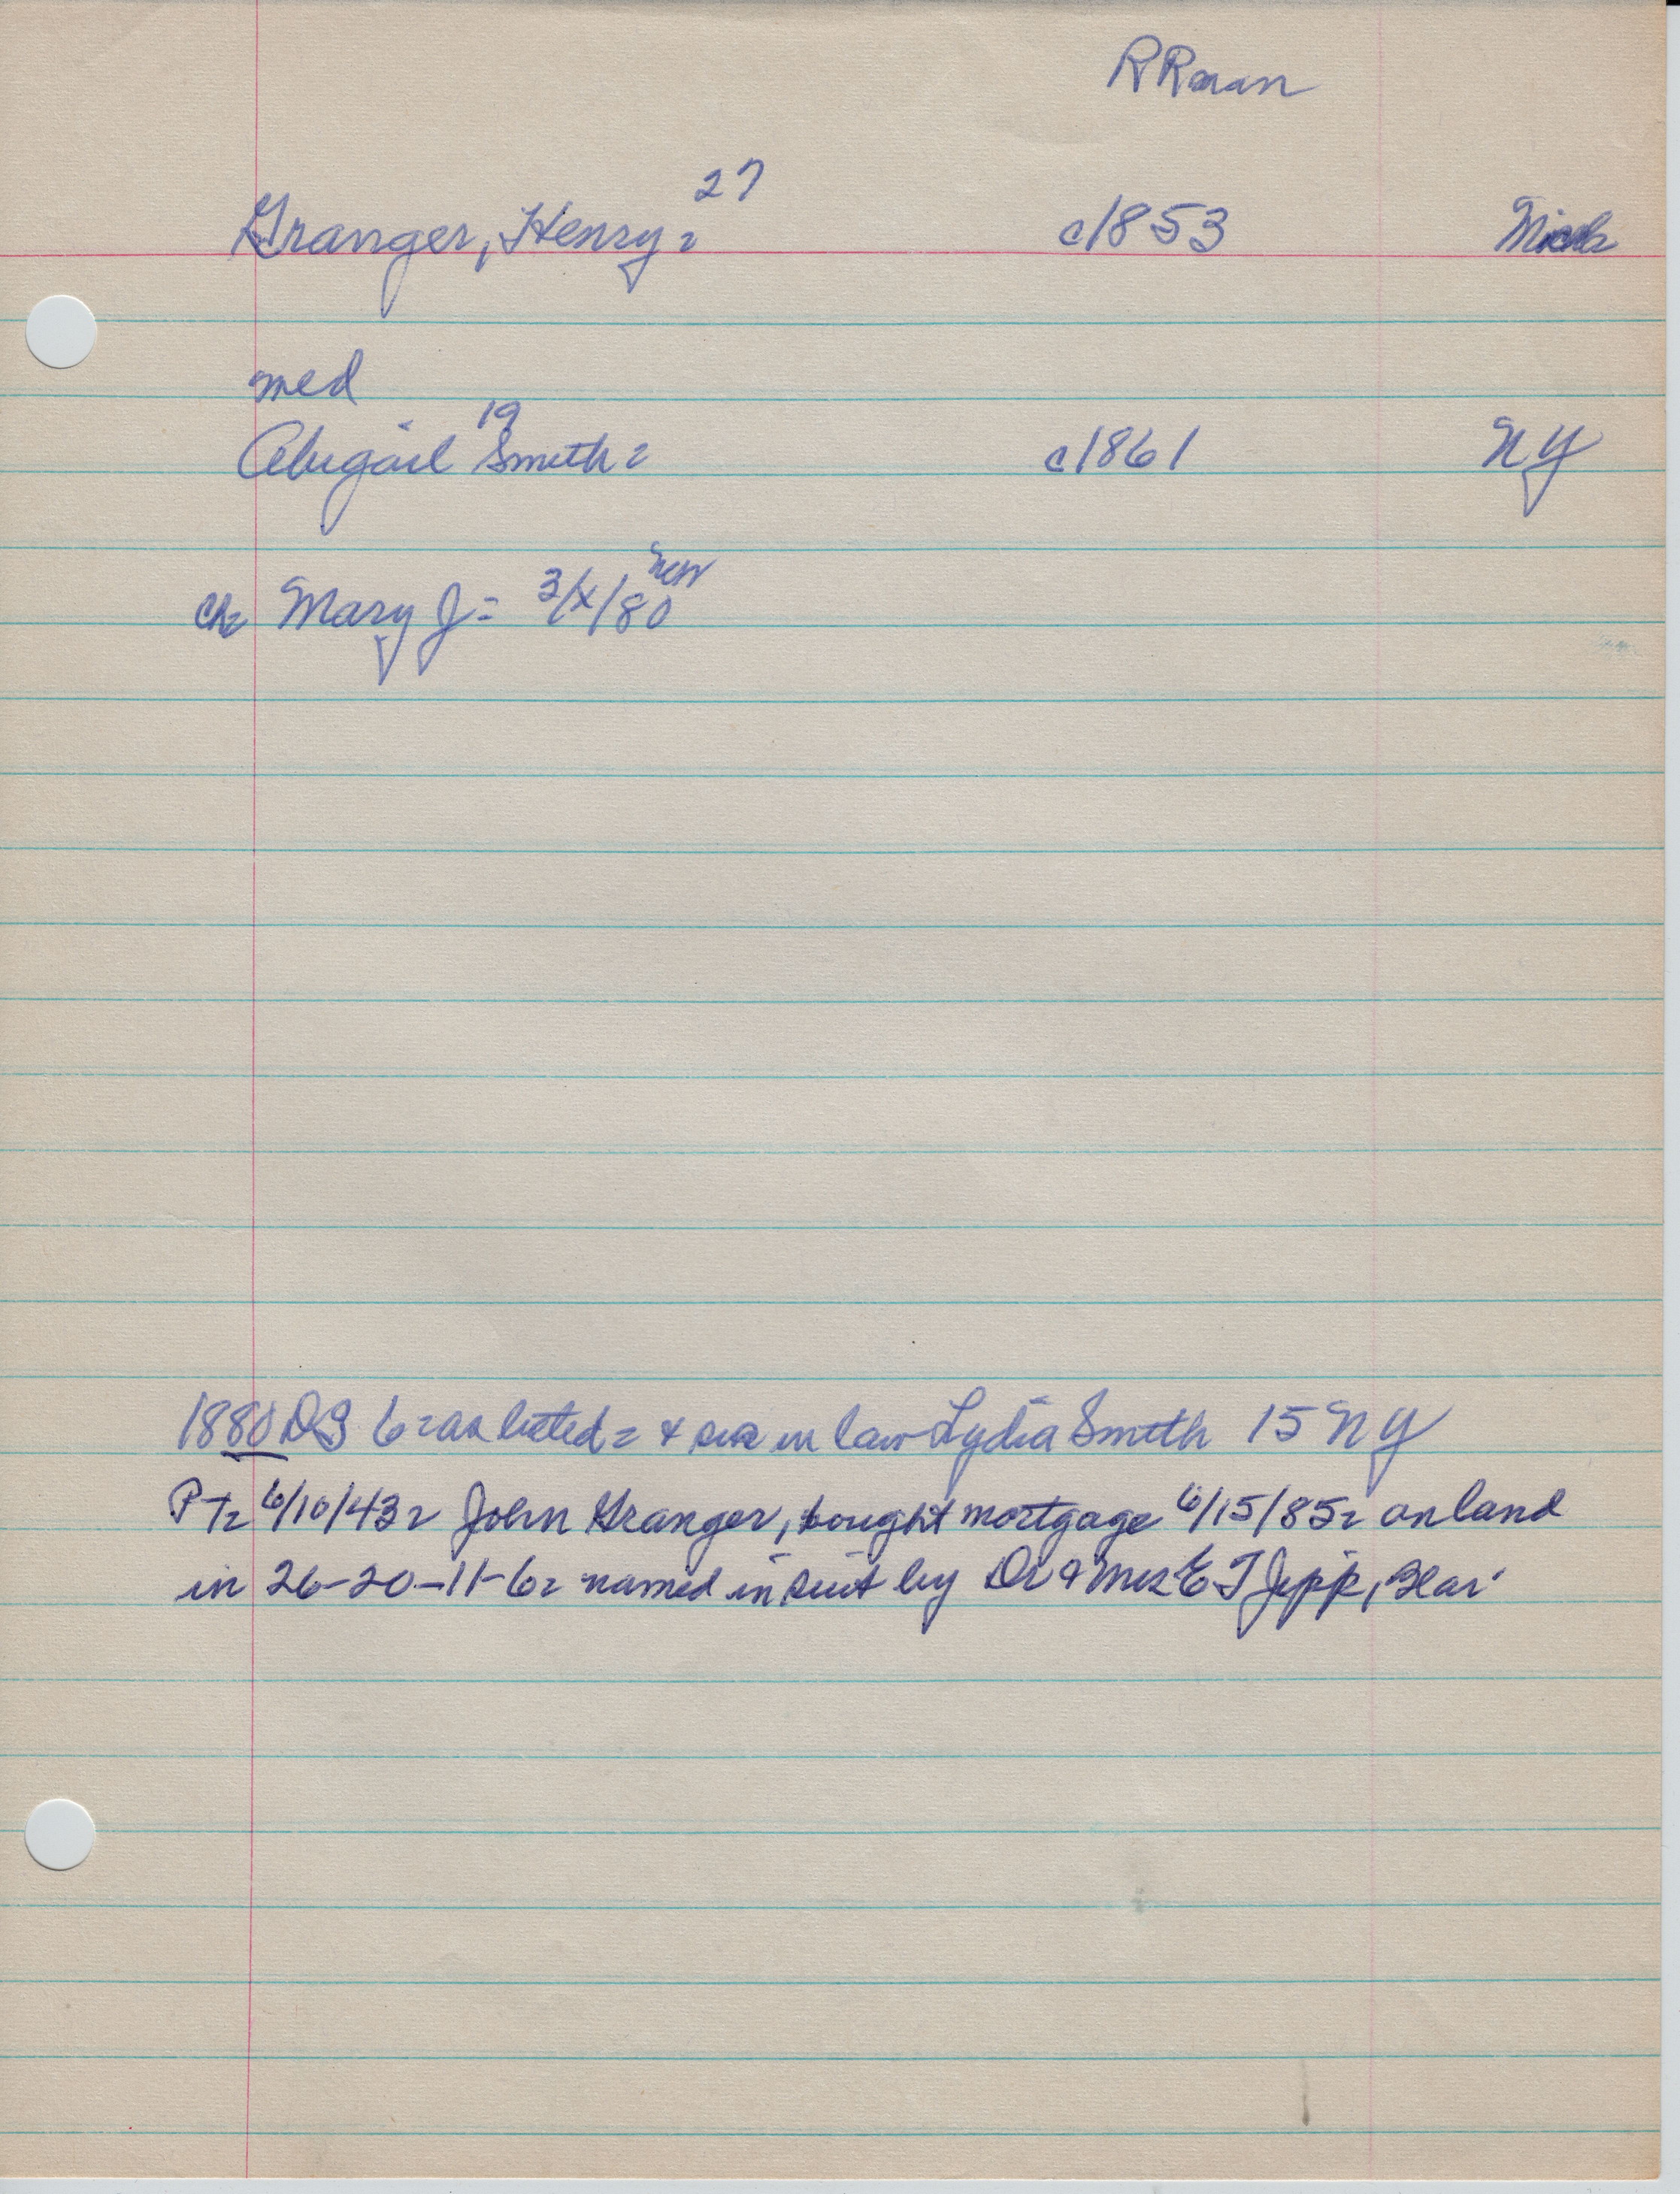 RRman
27
Granger, Henry = c1853 Mich
med
19
Abigail Smith = c1861 NY
Neb
ch = Mary J = 3/x/80
1880 DG 6 = as listed = & sis in law Lydia Smith 15 NY
PT = 6/10/43 = John Granger, bought mortgage 6/15/85 = on land
in 26-20-11-6 = named in suit by Dr & Mrs E T Jipp, Blair